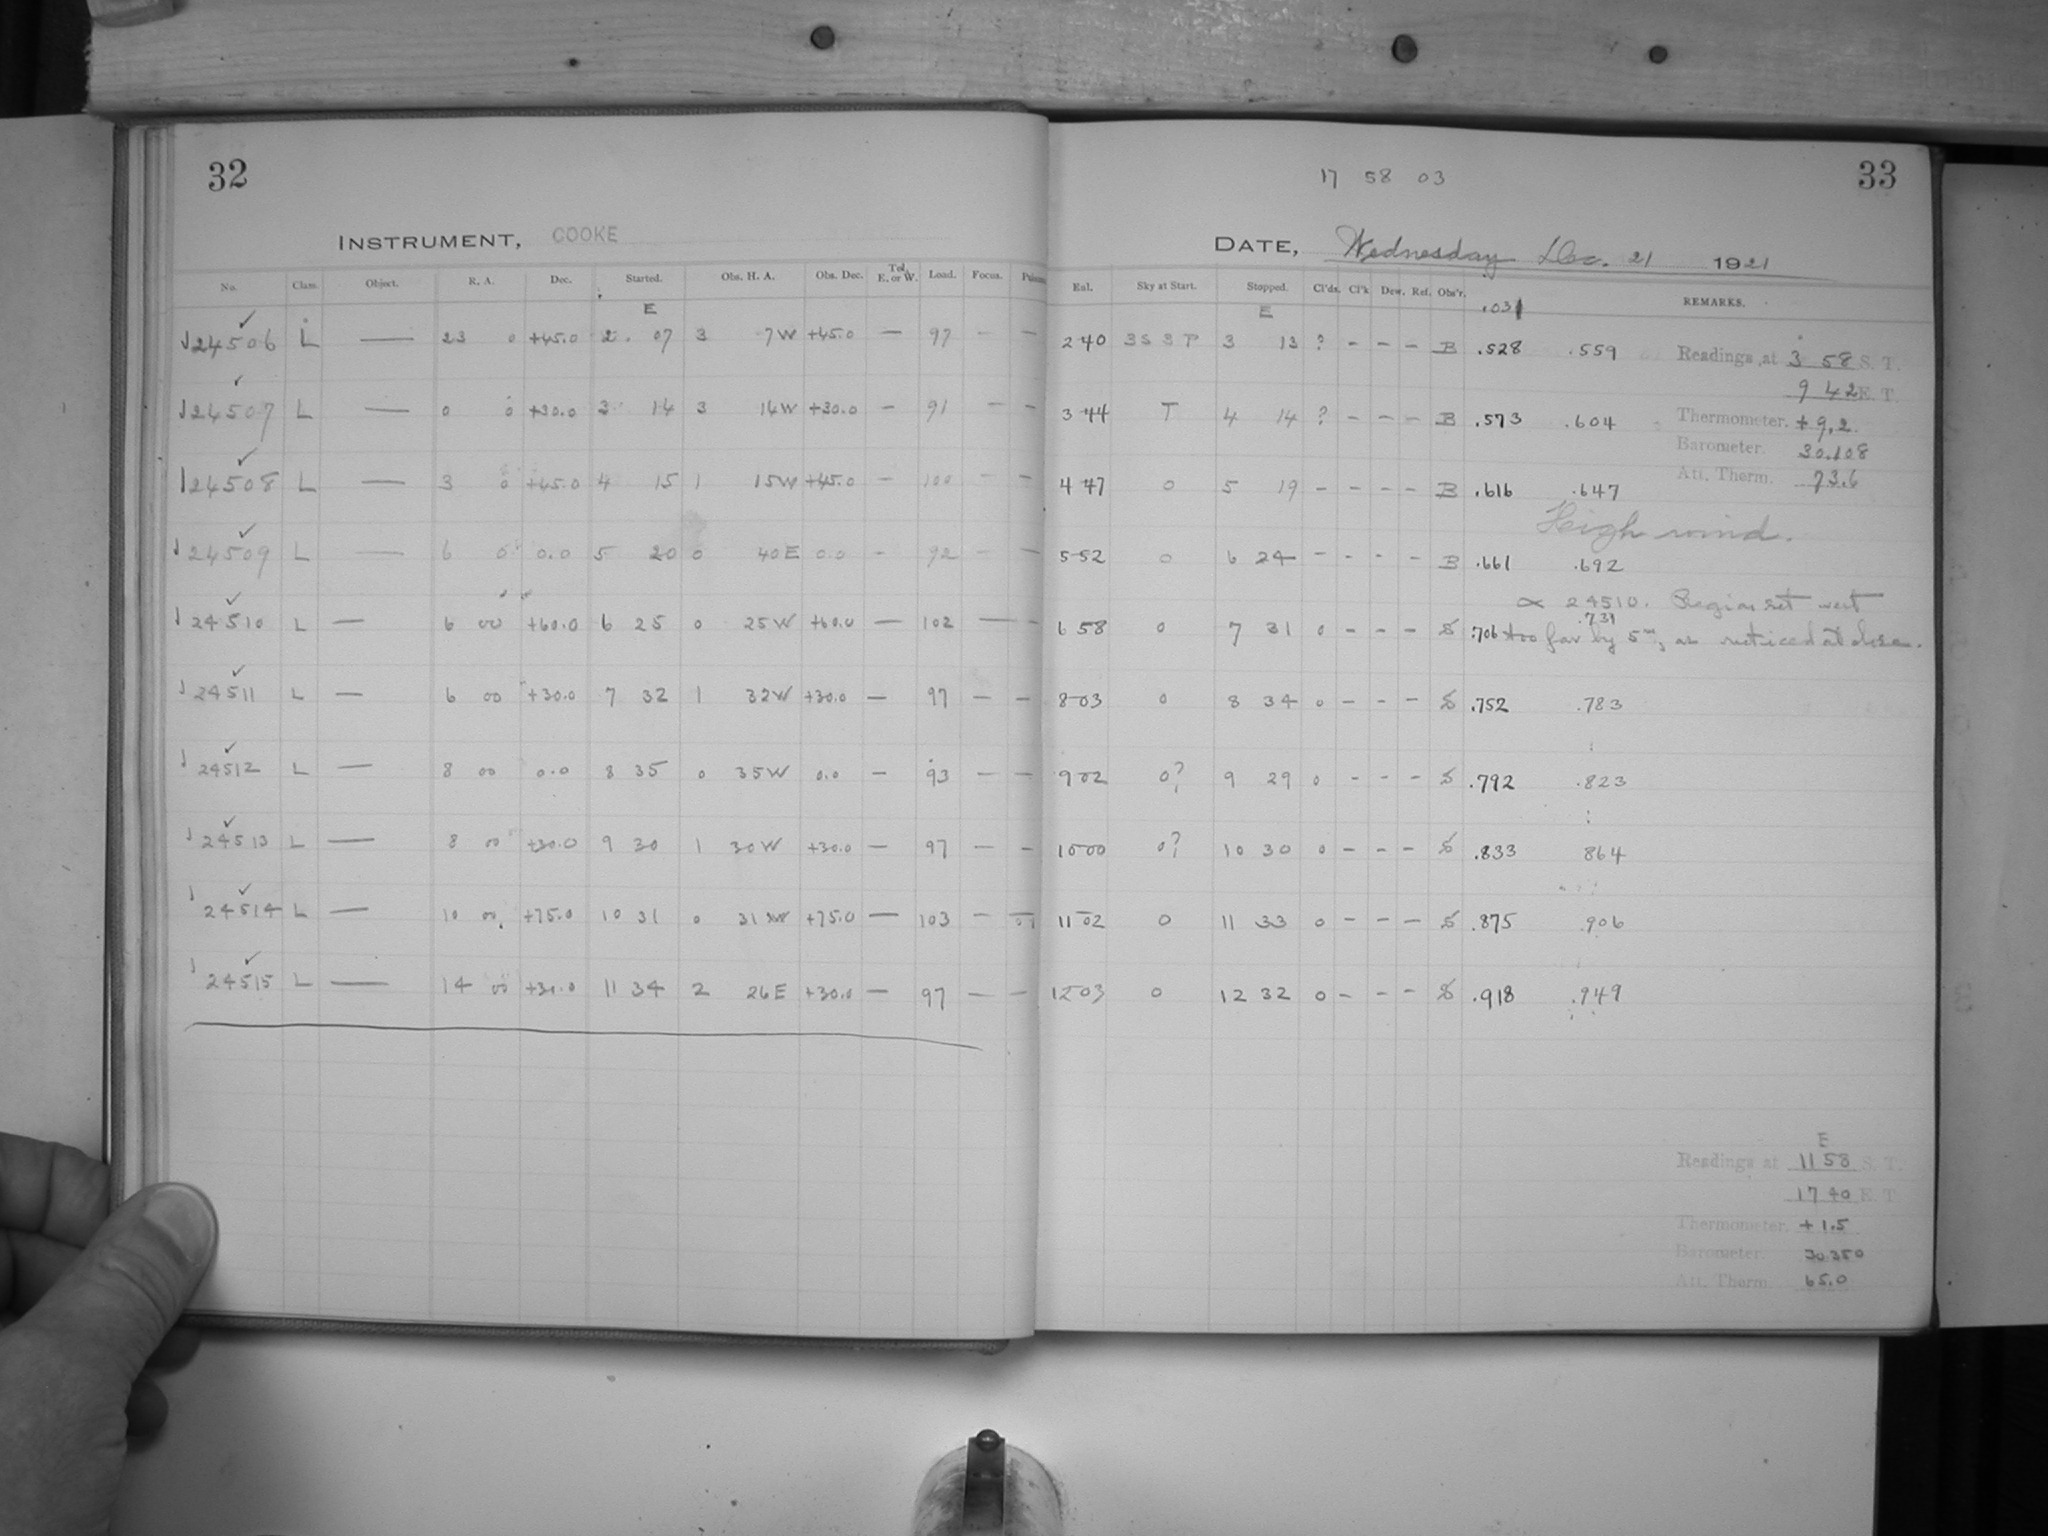 32
INSTRUMENT, COOKE
No. Class. Object. R. A. Dec. Started. Obs. H. A. Obs. Dec. Tel. E. or W. Load. Focus.
E
24506 L — 23 0 +45.0 2 07 3 7W +45.0 — 97 – –
24507 L — 0 0 +30.0 3 14 3 14W +30.0 – 91 – –
24508 L — 3 0 +45.0 4 15 1 15W +45.0 – 100 – –
24509 L — 6 0 0.0 5 20 0 40E 0.0 – 92 – –
24510 L — 6 00 +60.0 6 25 0 25W +60.0 — 102 — –
24511 L — 6 00 +30.0 7 32 1 32W +30.0 — 97 – –
24512 L — 8 00 0.0 8 35 0 35W 0.0 – 93 – –
24513 L — 8 00 +30.0 9 30 1 30W +30.0 – 97 – –
24514 L — 10 00 +75.0 10 31 0 31W +75.0 — 103 – —
24515 L — 14 00 +30.0 11 34 2 26E +30.0 — 97 – –
33
17 58 03
DATE, Wednesday Dec. 21 1921
Eul. Sky at Start. Stopped. Cl'ds. Cl'k Dew. Ref. Obs'r. REMARKS.
E .031
2 40 3S 3P 3 13 ? – – – B .528 .559
3 44 T 4 14 ? – – – B .573 .604
4 47 0 5 19 – – – – B .616 .647
5 52 0 6 24 – – – – B .661 .692
6 58 0 7 31 0 – – – S .706 .731
8 03 0 8 34 0 – – – S .752 .783
9 02 0? 9 29 0 – – – S .792 .823
10 00 0? 10 30 0 – – – S .833 864
11 02 0 11 33 0 – – – S .875 .906
12 03 0 12 32 0 – – – S .918 .949
Readings at 3 58 S. T.
9 42 E. T.
Thermometer. +9.2
Barometer. 30.108
Att. Therm. 73.6
High wind.
∝ 24510. Region set west
too far by 5ᵐ, as noticed at close.
E
Readings at 11 58 S. T.
17 40 E. T.
Thermometer. +1.5
Barometer. 30.350
Att. Therm. 65.0